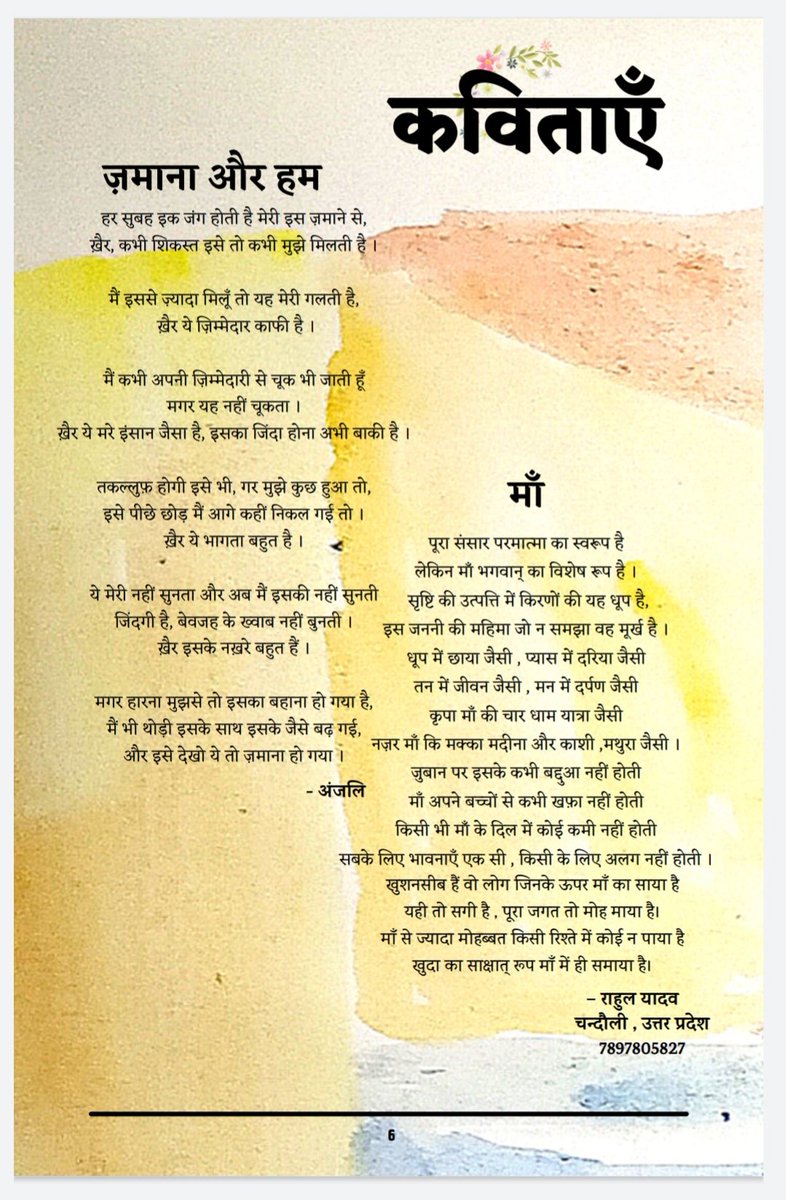 कविताएँ
ज़माना और हम
हर सुबह इक जंग होती है मेरी इस ज़माने से,
ख़ैर, कभी शिकस्त इसे तो कभी मुझे मिलती है ।
मैं इससे ज़्यादा मिलूँ तो यह मेरी गलती है,
ख़ैर ये ज़िम्मेदार काफी है ।
मैं कभी अपनी ज़िम्मेदारी से चूक भी जाती हूँ
मगर यह नहीं चूकता ।
ख़ैर ये मरे इंसान जैसा है, इसका जिंदा होना अभी बाकी है ।
तकल्लुफ़ होगी इसे भी, गर मुझे कुछ हुआ तो,
इसे पीछे छोड़ मैं आगे कहीं निकल गई तो ।
ख़ैर ये भागता बहुत है ।
ये मेरी नहीं सुनता और अब मैं इसकी नहीं सुनती
जिंदगी है, बेवजह के ख्वाब नहीं बुनती ।
ख़ैर इसके नख़रे बहुत हैं ।
मगर हारना मुझसे तो इसका बहाना हो गया है,
मैं भी थोड़ी इसके साथ इसके जैसे बढ़ गई,
और इसे देखो ये तो ज़माना हो गया ।
- अंजलि
माँ
पूरा संसार परमात्मा का स्वरूप है
लेकिन माँ भगवान् का विशेष रूप है ।
सृष्टि की उत्पत्ति में किरणों की यह धूप है,
इस जननी की महिमा जो न समझा वह मूर्ख है ।
धूप में छाया जैसी , प्यास में दरिया जैसी
तन में जीवन जैसी , मन में दर्पण जैसी
कृपा माँ की चार धाम यात्रा जैसी
नज़र माँ कि मक्का मदीना और काशी ,मथुरा जैसी ।
जुबान पर इसके कभी बद्दुआ नहीं होती
माँ अपने बच्चों से कभी खफ़ा नहीं होती
किसी भी माँ के दिल में कोई कमी नहीं होती
सबके लिए भावनाएँ एक सी , किसी के लिए अलग नहीं होती ।
खुशनसीब हैं वो लोग जिनके ऊपर माँ का साया है
यही तो सगी है , पूरा जगत तो मोह माया है।
माँ से ज्यादा मोहब्बत किसी रिश्ते में कोई न पाया है
खुदा का साक्षात् रूप माँ में ही समाया है।
– राहुल यादव
चन्दौली , उत्तर प्रदेश
7897805827
6